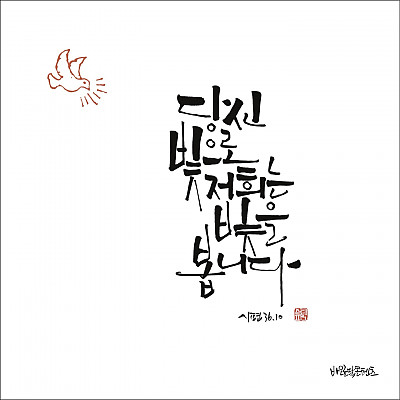 당신
빛으로
저희는
빛을
봅니다
시편 36,10